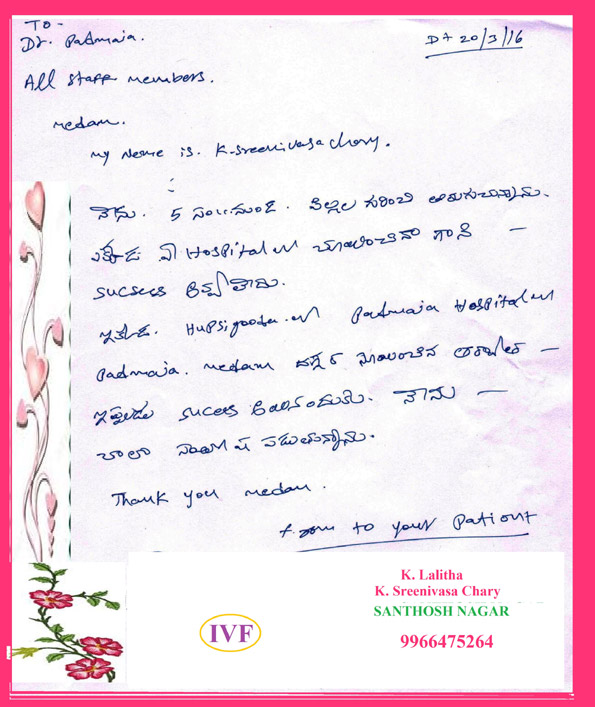 To-
Dr. Padmaja.
Dt 20/3/16
All staff members.
medam.
my Name is. K.Sreenivasa chary.
నాను. 5 సం॥నుండి. పిల్లల గురించి తిరుగుచున్నాను.
ఎక్కడ ఏ Hospital లో చూపించినా గాని -
sucsess కాలేదు.
ఇక్కడ. Hupsigooda.లో Padmaja Hospital లో
Padmaja. medam దగ్గర చూపించిన తరువాత -
ఇప్పుడు sucess అయినందుకు. నాను -
చాలా సంతోష పడుతున్నాను.
Thank you medam.
from to your Patient
K. Lalitha
K. Sreenivasa Chary
SANTHOSH NAGAR
IVF
9966475264